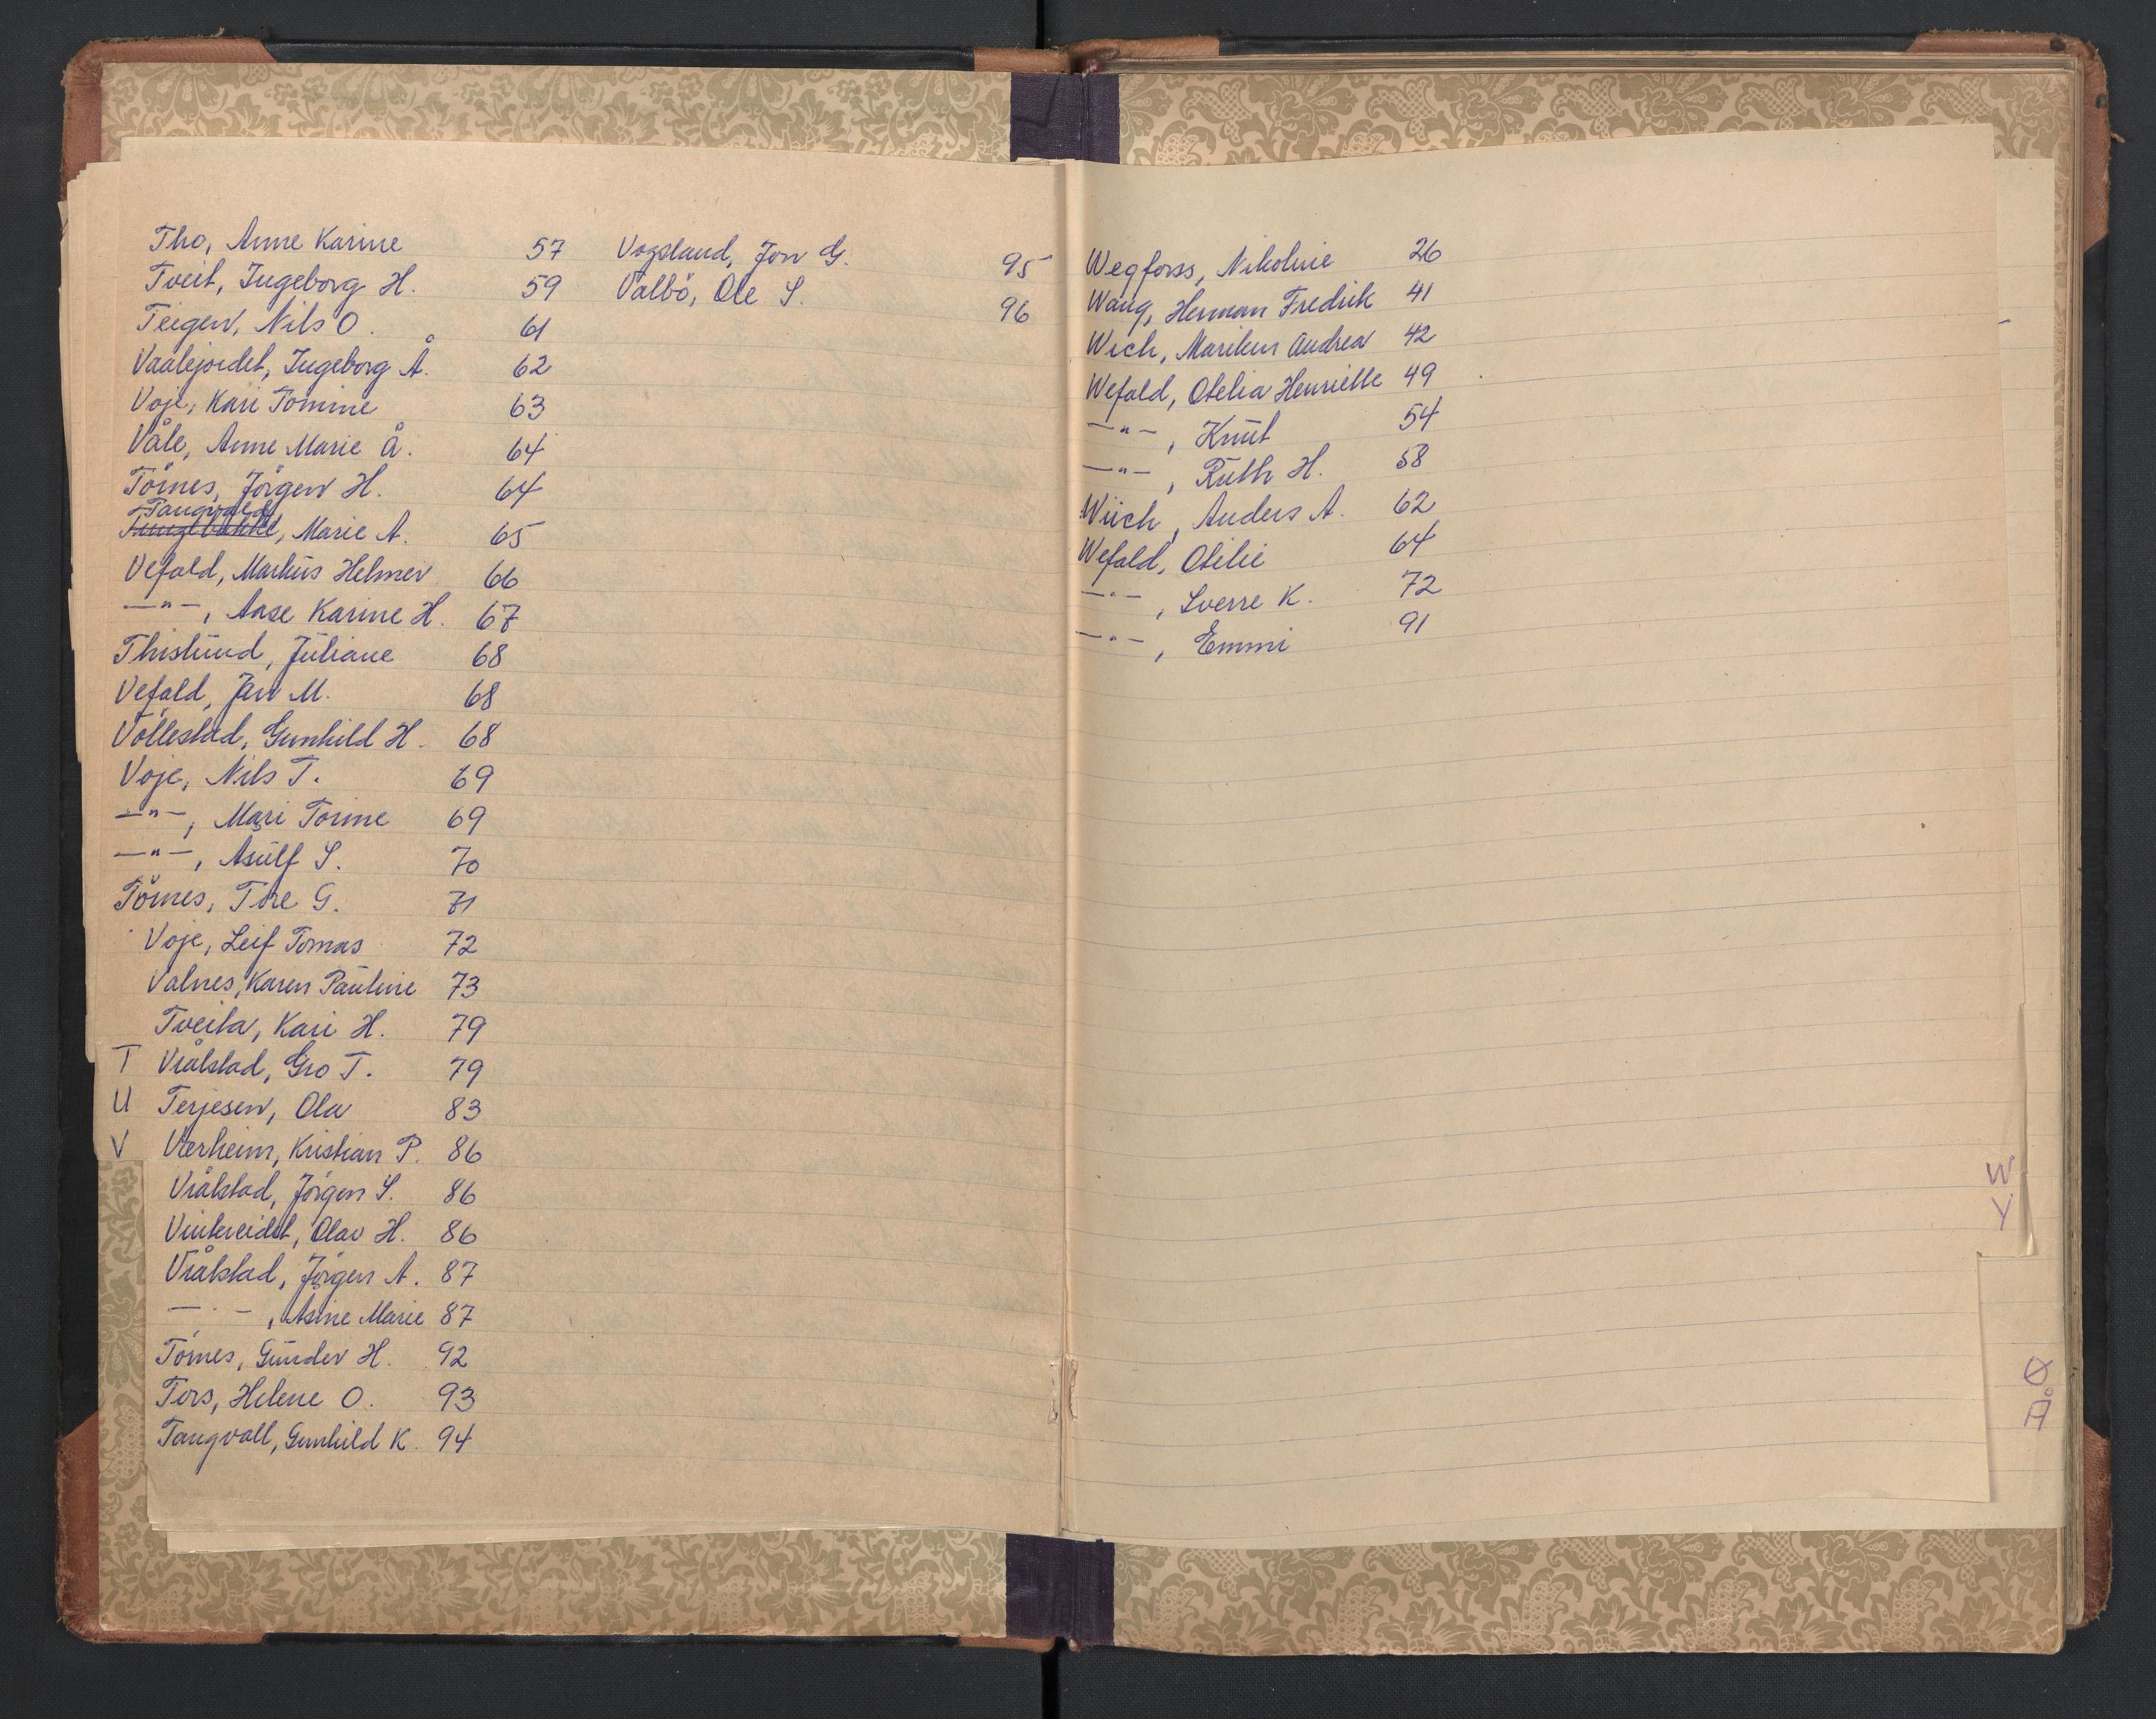 Tho, Anne Karine 57
Tveit, Ingeborg H. 59
Teigen, Nils O. 61
Vaalejordet, Ingeborg Å. 62
Voje, Kari Tomine 63
Våle, Anne Marie Å. 64
Törnes, Jörgen H. 64
Tangvald
, Marie A. 65
Vefald, Markus Helmer 66
—"—, Aase Karine H. 67
Thislund, Juliane 68
Vefald, Jan M. 68
Völlestad, Gunhild H. 68
Voje, Nils T. 69
—"—, Mari Torine 69
—"—, Asulf S. 70
Törnes, Tore G. 71
Voje, Leif Tomas 72
Valnes, Karen Pauline 73
Tveita, Kari H. 79
T Vrålstad, Gro T. 79
U Terjesen, Ola 83
V Værheim, Kristian P. 86
Vrålstad, Jörgen S. 86
Vintereidet, Olav H. 86
Vrålstad, Jörgen A. 87
—"—, Asine Marie 87
Törnes, Gunder H. 92
Tors, Helene O. 93
Tangvall, Gunhild K. 94
Vogsland, Jon G. 95
Valbö, Ole S. 96
Wegforss, Nikoline 26
Waug, Herman Fredrik 41
Wich, Marikus Andrea 42
Wefald, Otelia Henriette 49
—"—, Knut 54
—"—, Ruth H. 58
Wiich, Anders A. 62
Wefald, Otilie 64
—"—, Sverre K. 72
—"—, Emmi 91
W
Y
Ø
Å